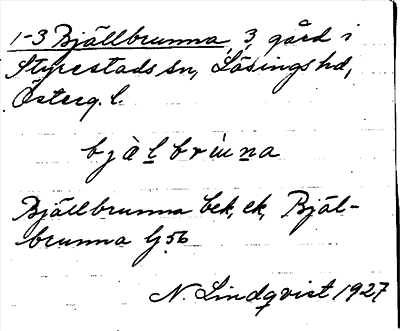 1-3 Bjällbrunna, 3, gård i
Styrestads sn, Lösings hd,
Österg. l.
bjàl̲brùn̲a
Bjällbrunna bek, ek, Bjäl-
brunna Gj 56
N. Lindqvist 1927